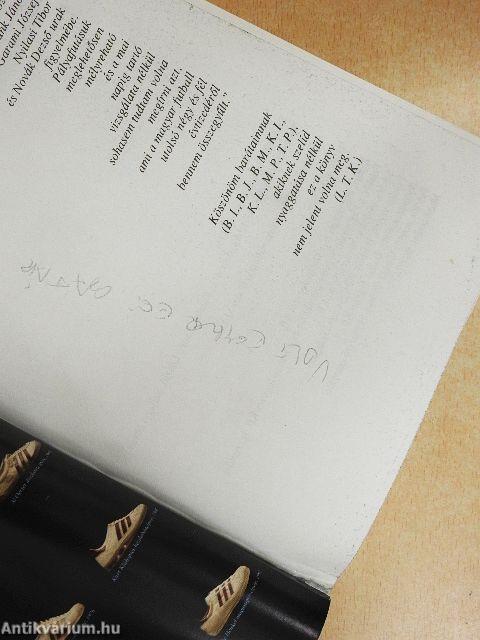 és Novák Dezső urak
figyelmébe.
Pályafutásuk
meglehetősen
mélyreható
és a mai
napig tartó
vizsgálata nélkül
sohasem tudtam volna
megérni azt,
ami a magyar futball
utolsó négy és fél
évtizedéről
bennem összegyűlt."
Köszönöm barátaimnak
(B. I., B. J., B. M., K. I.,
K. L., M. P., T. P.),
akiknek szelíd
nyaggatása nélkül
ez a könyv
nem jelent volna meg.
(L. T. K.)
VOLT
Antikvárium.hu